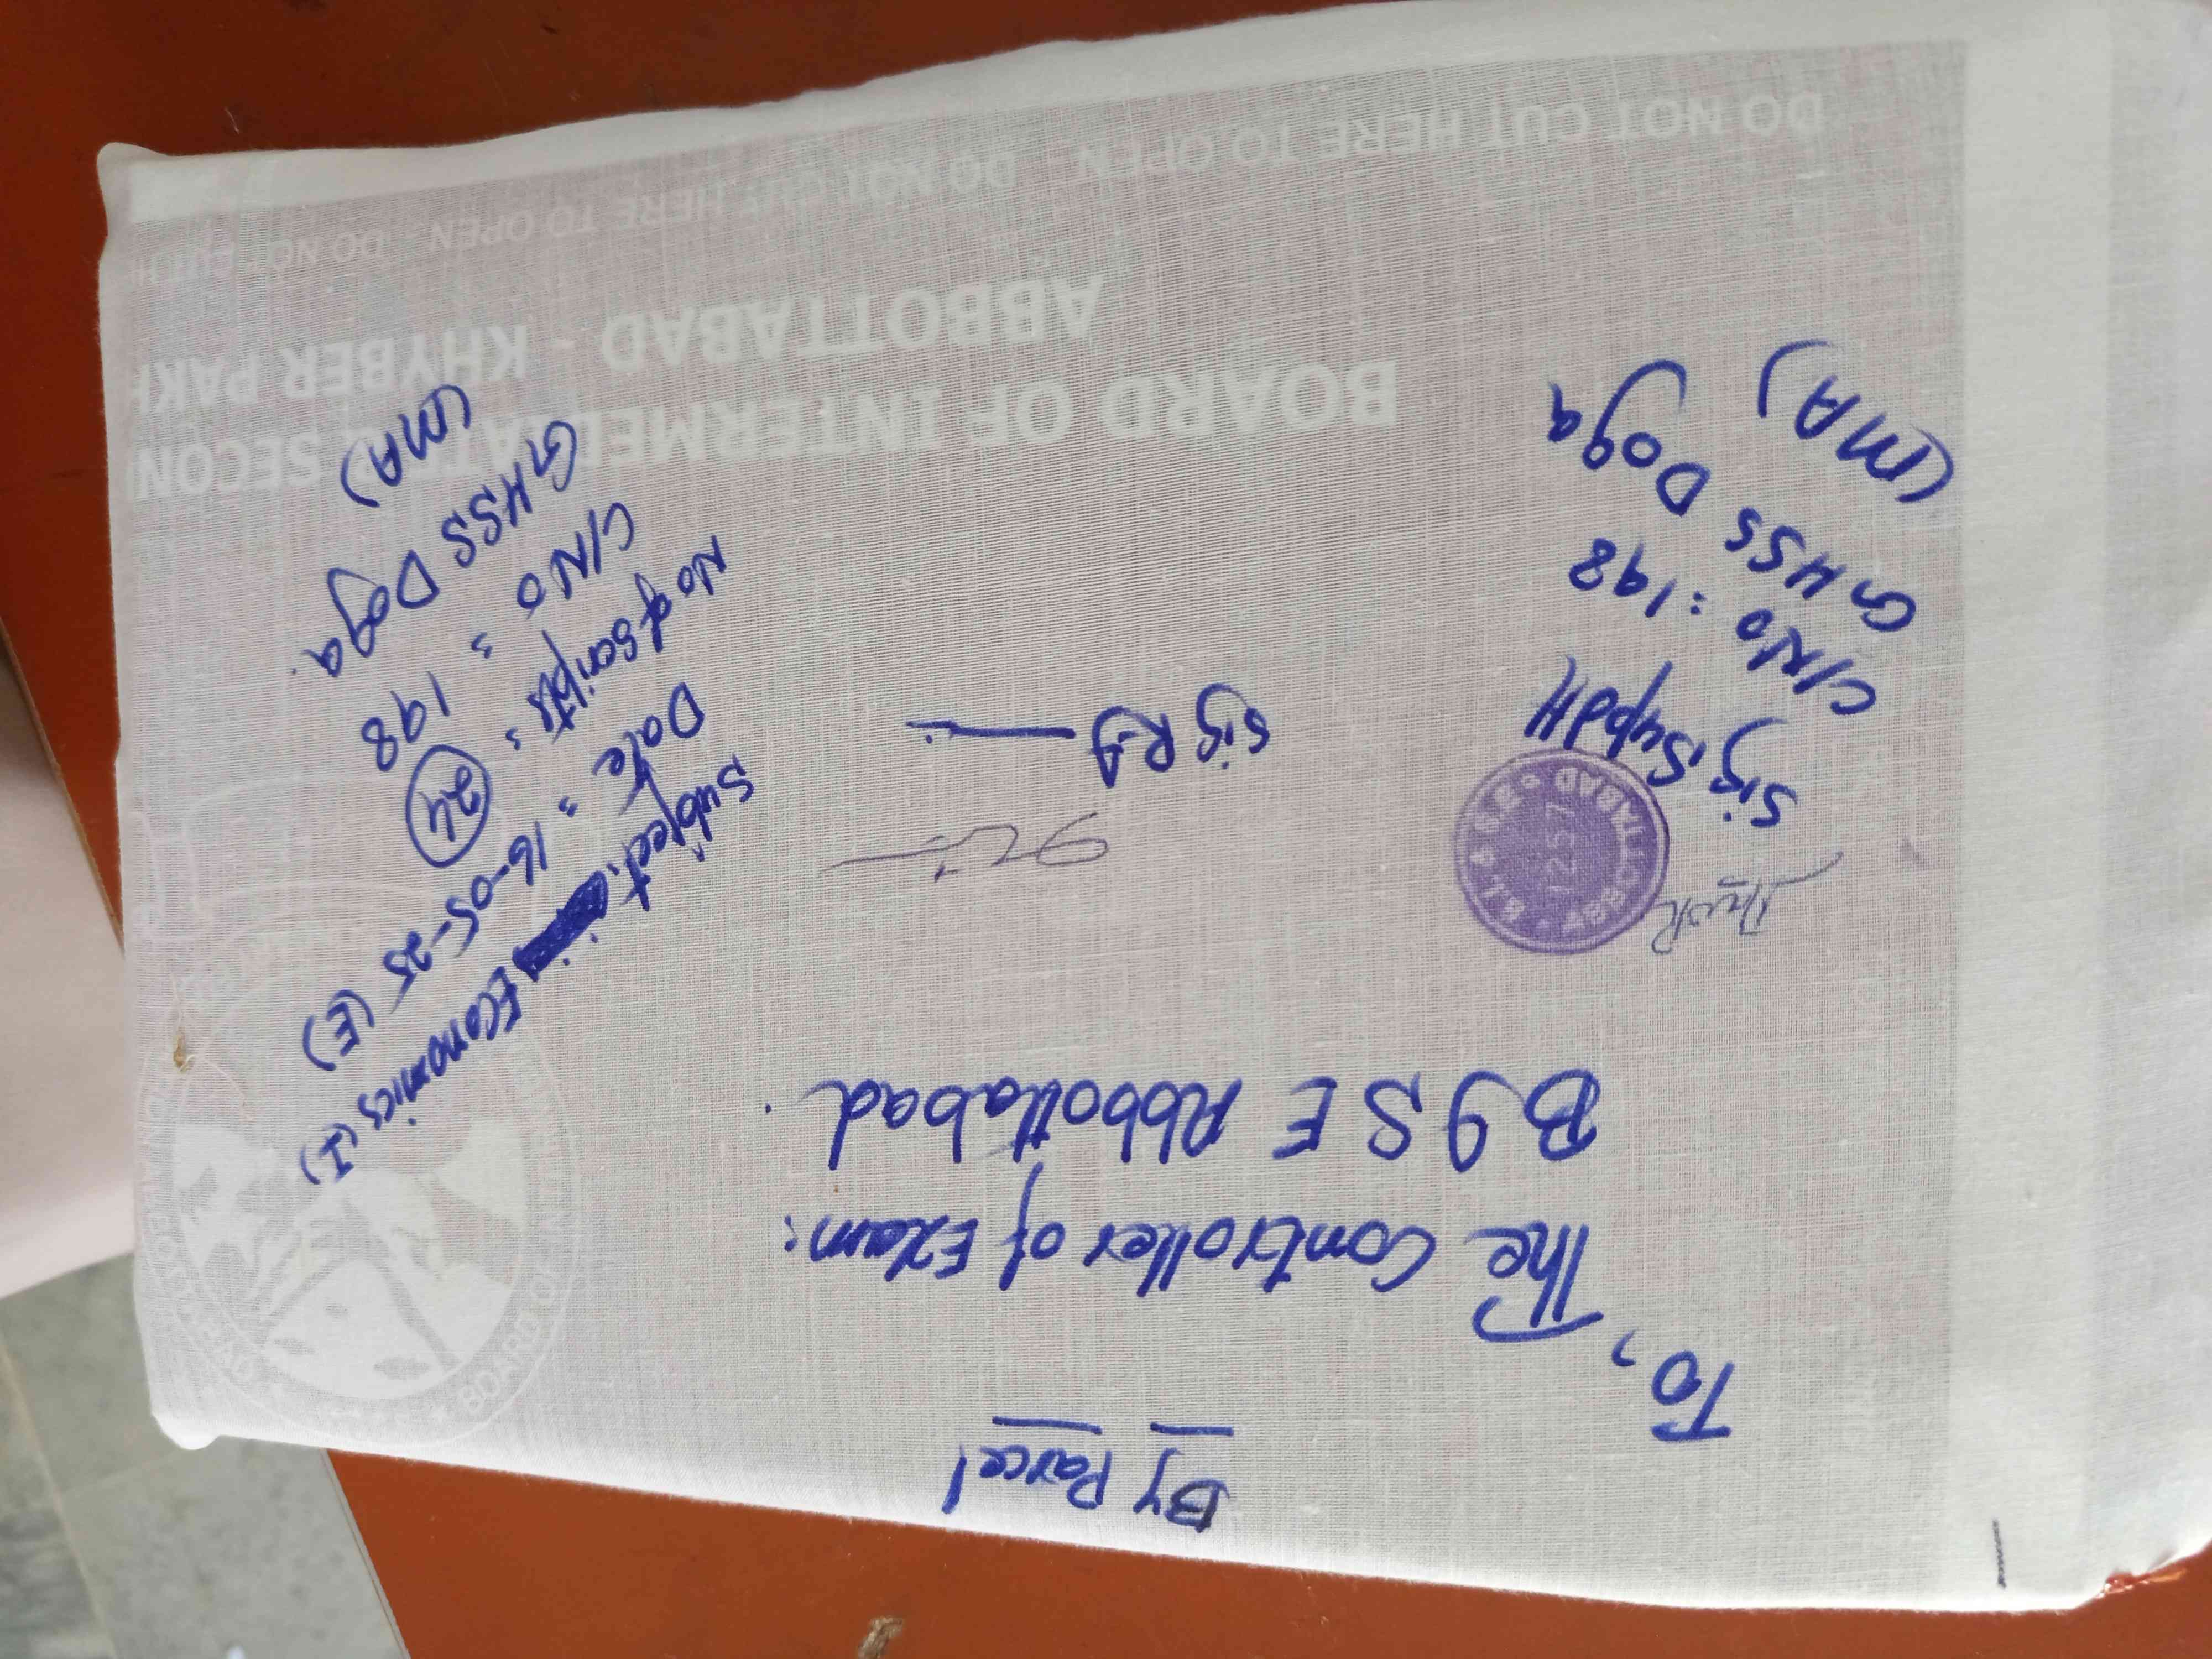 By Parcel
To,
The Controller of Exam:
B I S E Abbottabad.
Subject: Economics (I)
Date = 16-05-25 (E)
No of Scripts = 24
C/No = 198
GHSS Doga.
(MA)
Sig R.I
Sig Supdtt
C/No = 198
GHSS Doga
(MA)
B.I. & S.E. ABBOTTABAD
1257
BOARD OF INTERMEDIATE SECON
ABBOTTABAD - KHYBER PAKH
DO NOT CUT HERE TO OPEN DO NOT CUT HERE TO OPEN DO NOT CUT H
DO NOT CUT HERE TO OPEN